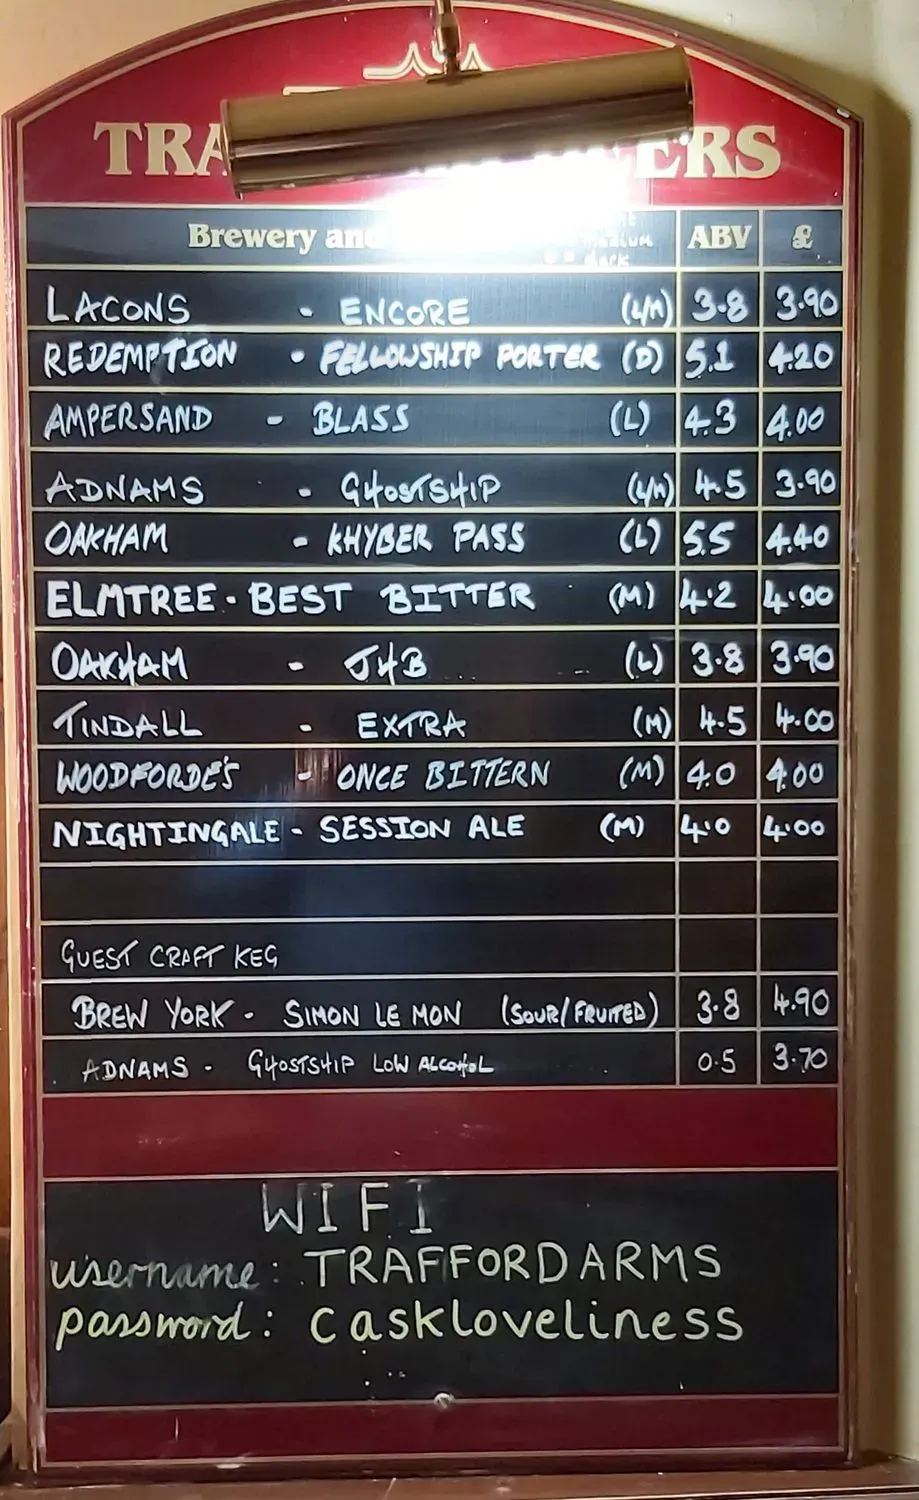 TRA ERS
Brewery and ABV £
medium
dark
LACONS - ENCORE (L/M) 3.8 3.90
REDEMPTION - FELLOWSHIP PORTER (D) 5.1 4.20
AMPERSAND - BLASS (L) 4.3 4.00
ADNAMS - GHOSTSHIP (L/M) 4.5 3.90
OAKHAM - KHYBER PASS (L) 5.5 4.40
ELMTREE - BEST BITTER (M) 4.2 4.00
OAKHAM - JHB (L) 3.8 3.90
TINDALL - EXTRA (M) 4.5 4.00
WOODFORDE'S - ONCE BITTERN (M) 4.0 4.00
NIGHTINGALE - SESSION ALE (M) 4.0 4.00
GUEST CRAFT KEG
BREW YORK - SIMON LE MON (SOUR/FRUITED) 3.8 4.90
ADNAMS - GHOSTSHIP LOW ALCOHOL 0.5 3.70
WIFI
username: TRAFFORDARMS
password: caskloveliness